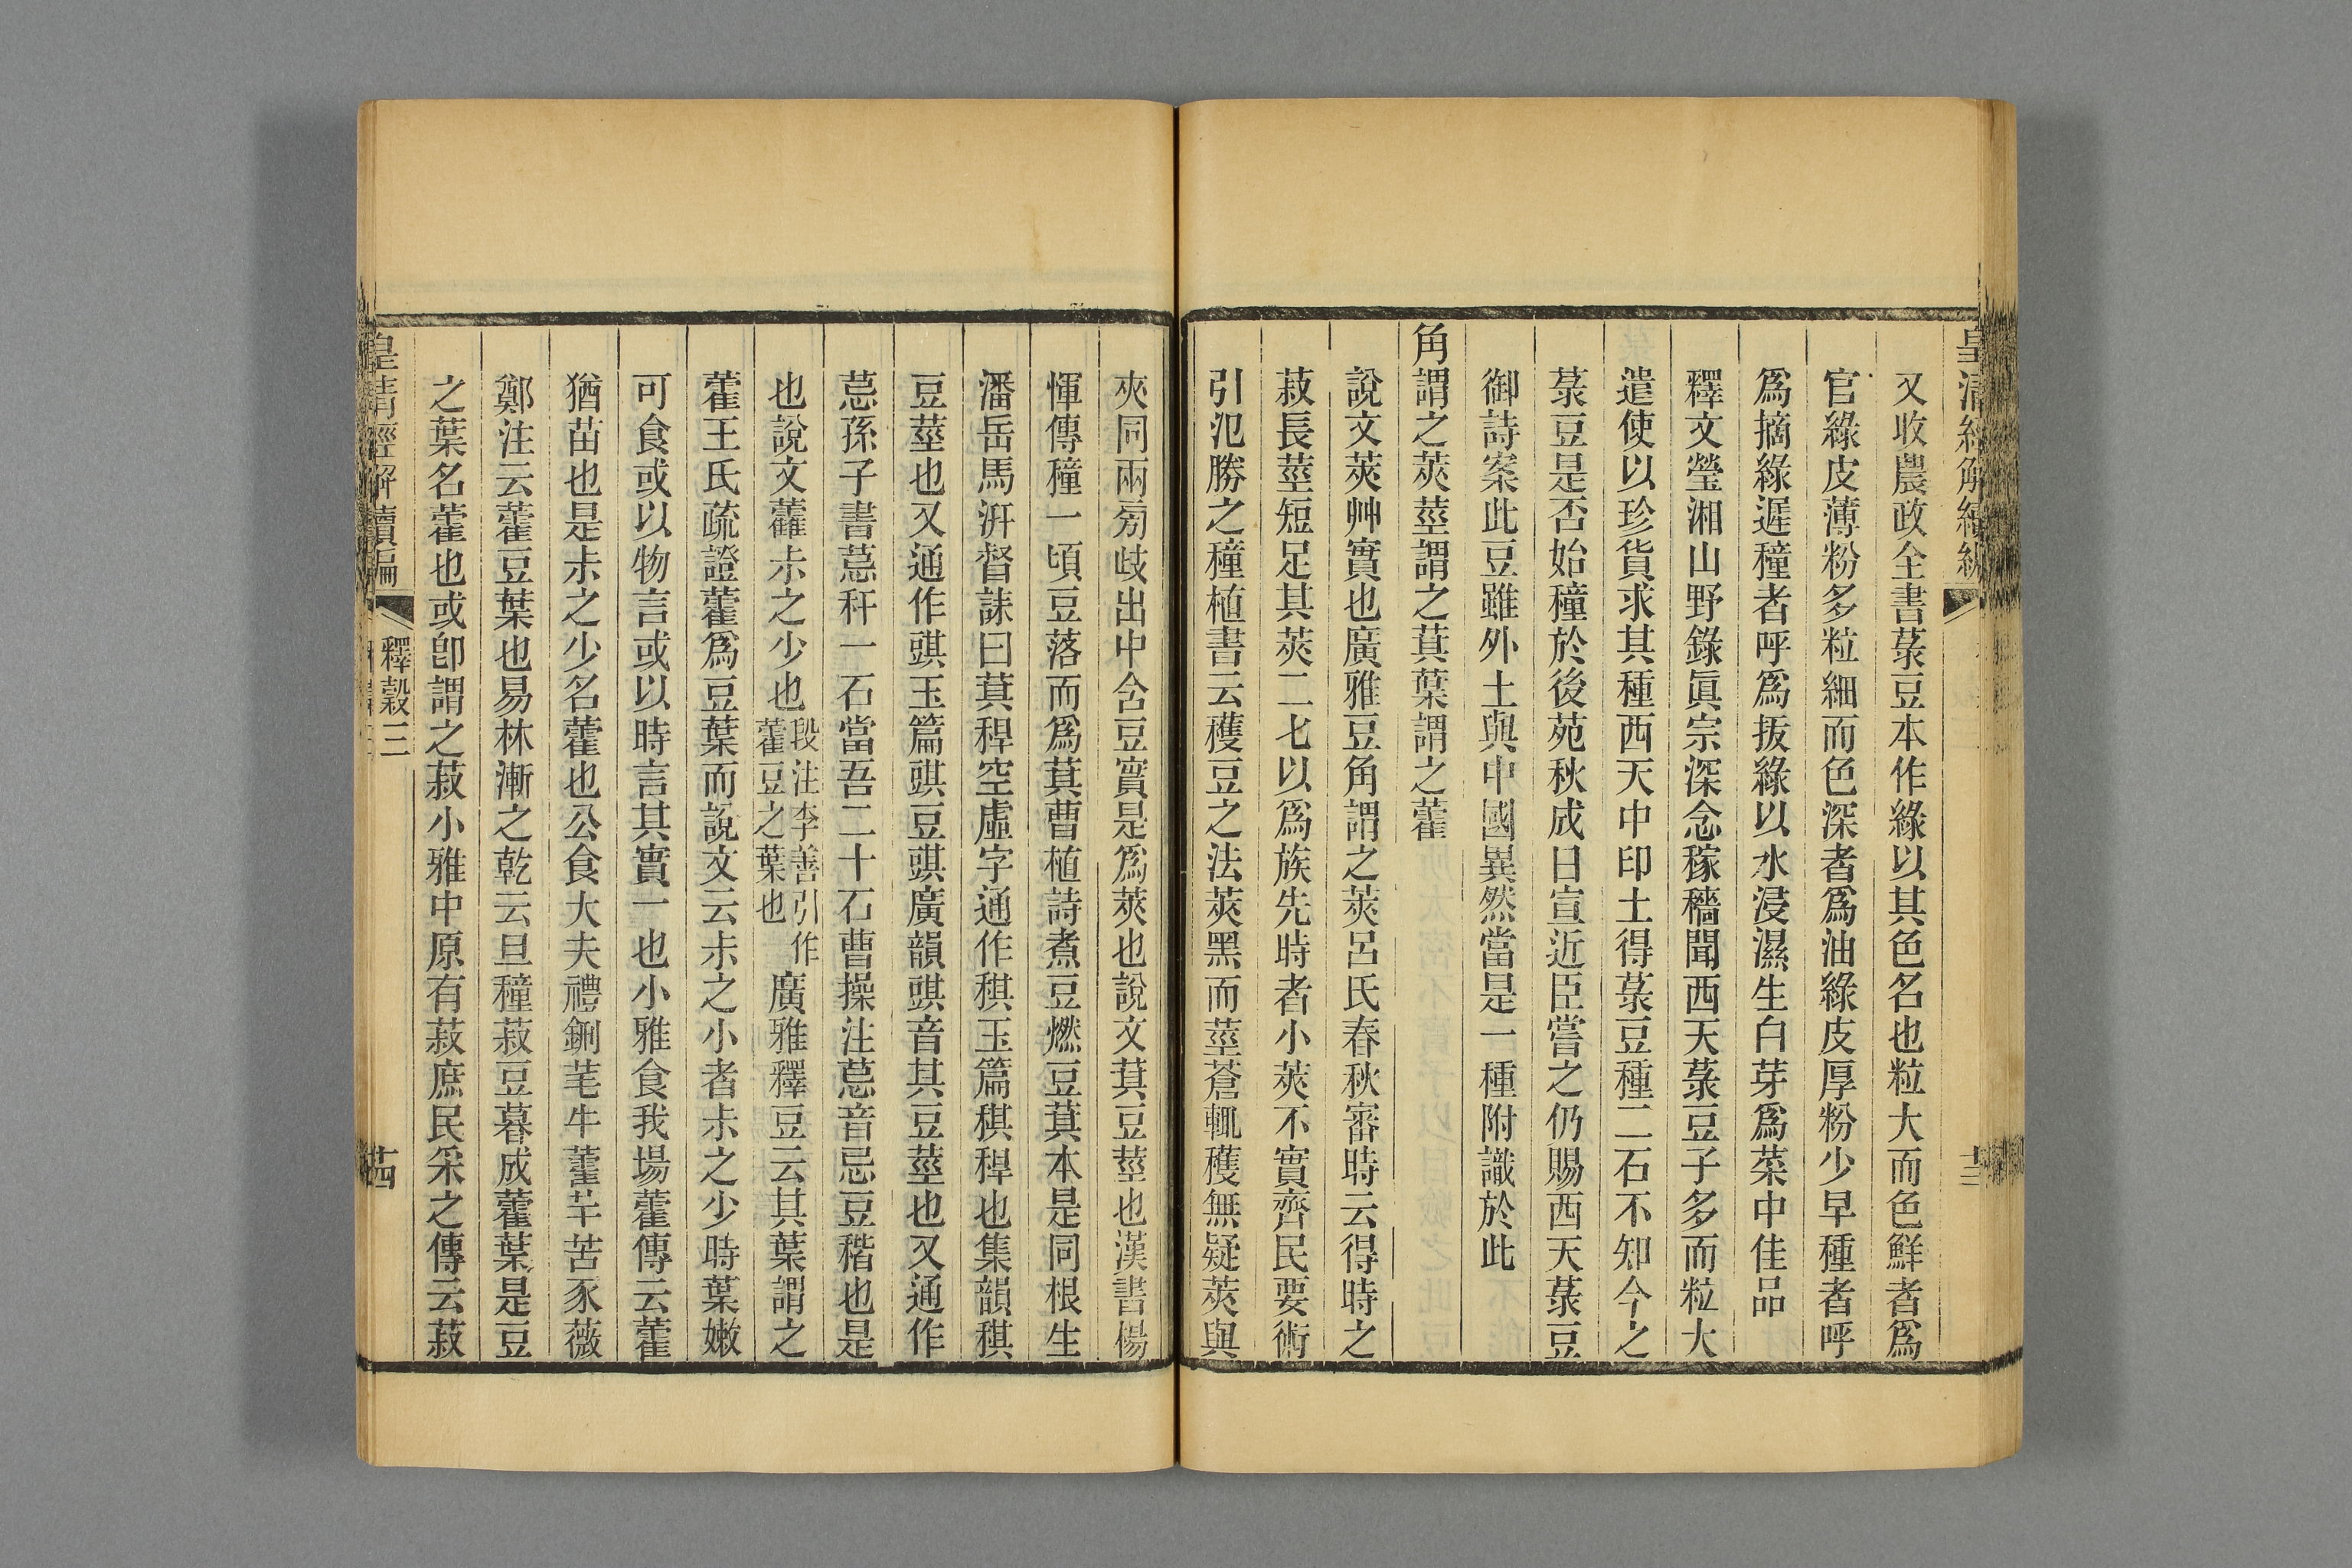 皇清經解續編
又收農政全書菉豆本作綠以其色名也粒大而色鮮者爲
官綠皮薄粉多粒細而色深者爲油綠皮厚粉少早種者呼
爲摘綠遲穜者呼爲拔綠以水浸濕生白芽爲菜中佳品
釋文瑩湘山野錄眞宗深念稼穡聞西天菉豆子多而粒大
遣使以珍貨求其種西天中印土得菉豆種二石不知今之
菉豆是否始穜於後苑秋成日宣近臣嘗之仍賜西天菉豆
御詩案此豆雖外土與中國異然當是一種附識於此
角謂之莢莖謂之萁葉謂之藿
說文莢艸實也廣雅豆角謂之莢呂氏春秋審時云得時之
菽長莖短足其莢二七以爲族先時者小莢不實齊民要術
引氾勝之穜植書云穫豆之法莢黑而莖蒼輒穫無疑莢與
夾同兩刕歧出中含豆實是爲莢也說文萁豆莖也漢書楊
惲傳穜一頃豆落而爲萁曹植詩煮豆燃豆萁本是同根生
潘岳馬汧督誄曰萁稈空虛字通作稘玉篇稘稈也集韻稘
豆莖也又通作䜺玉篇䜺豆䜺廣韻䜺音其豆莖也又通作
𦮼孫子書𦮼秆一石當吾二十石曹操注𦮼音忌豆稭也是
也說文藿尗之少也段注李善引作藿豆之葉也廣雅釋豆云其葉謂之
藿王氏疏證藿爲豆葉而說文云尗之小者尗之少時葉嫩
可食或以物言或以時言其實一也小雅食我場藿傳云藿
猶苗也是尗之少名藿也公食大夫禮鉶芼牛藿羊苦豕薇
鄭注云藿豆葉也易林漸之乾云旦穜菽豆暮成藿葉是豆
之葉名藿也或卽謂之菽小雅中原有菽庶民采之傳云菽
皇清經解續編
釋穀三
十四